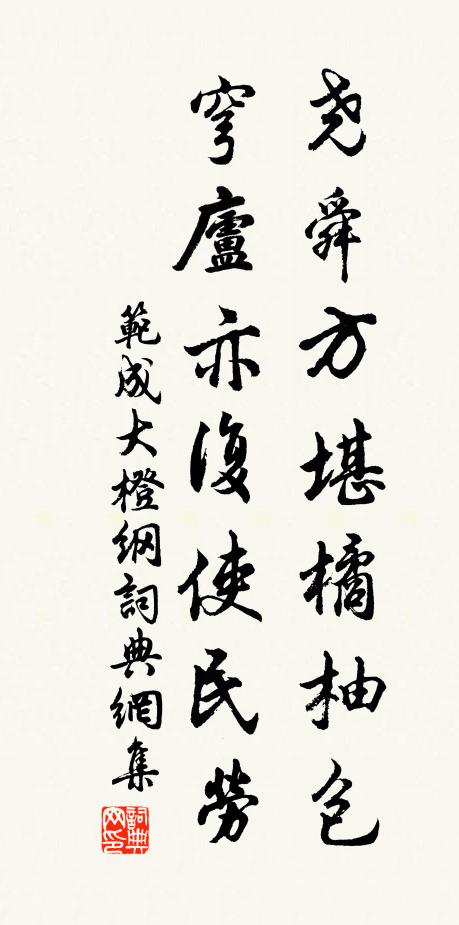 堯舜方堪橘柚包
穹廬亦復使民勞
範成大橙綱詞典網集
詞典网印